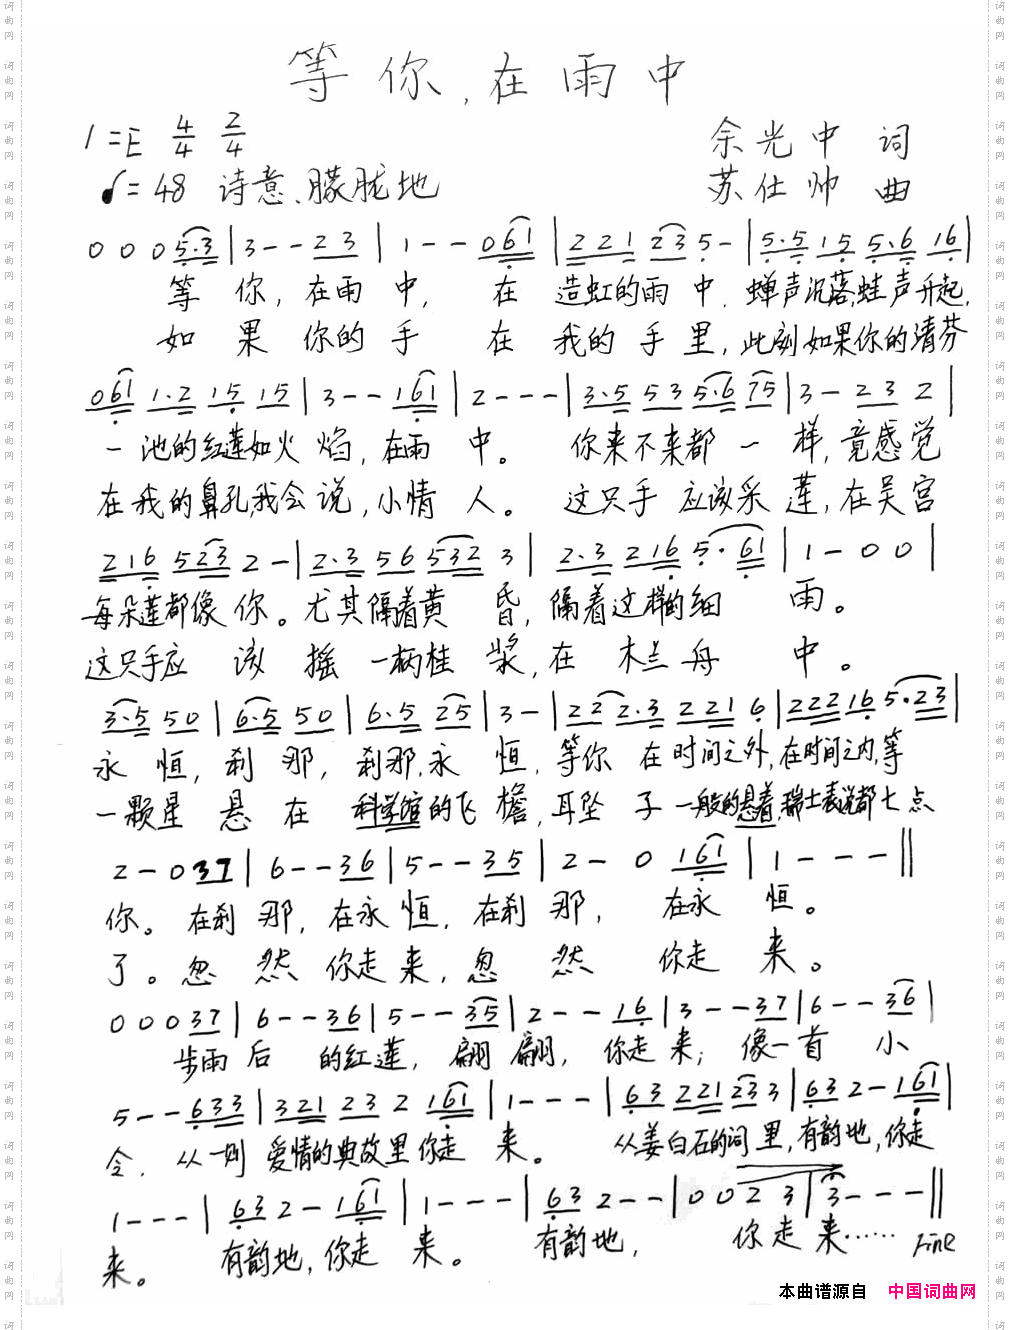 等你,在雨中
1=E 4/4 2/4
余光中 词
♩=48 诗意、朦胧地
苏仕帅 曲
0 0 0 5·3 | 3 - - 2 3 | 1 - - 0 6 1 | 2 2 1 2 3 5 - | 5·5 1 5 5·6 1 6 |
等 你, 在雨 中, 在 造虹的雨 中, 蝉声沉落,蛙声升起,
如 果 你的 手 在 我的 手 里, 此刻如果你的清芬
0 6 1 1·2 1 5 1 5 | 3 - - 1 6 1 | 2 - - - | 3·5 5 3 5·6 7 5 | 3 - 2 3 2 |
一 池的红莲如火 焰, 在雨 中。 你来不来都 一 样, 竟感觉
在我的鼻孔,我会 说, 小情 人。 这只手 应该采 莲, 在吴宫
2 1 6 5 2 3 2 - | 2·3 5 6 5 3 2 3 | 2·3 2 1 6 5·6 1 | 1 - 0 0 |
每朵莲都像 你。 尤其隔着黄 昏, 隔着这样的细 雨。
这只手应 该 摇 一柄桂 浆, 在 木兰 舟 中。
3·5 5 0 | 6·5 5 0 | 6·5 2 5 | 3 - | 2 2 2·3 2 2 1 6 | 2 2 2 2 1 6 5·2 3 |
永 恒, 刹 那, 刹那,永 恒, 等你 在时间之外,在时间之内,等
一颗星 悬 在 科学馆的飞 檐, 耳坠 子 一般的悬着,瑞士表说都七点
2 - 0 3 7 | 6 - - 3 6 | 5 - - 3 5 | 2 - 0 1 6 1 | 1 - - - ‖
你。 在刹 那, 在永 恒, 在刹 那, 在永 恒。
了。 忽 然 你走 来, 忽 然 你走 来。
0 0 0 3 7 | 6 - - 3 6 | 5 - - 3 5 | 2 - - 1 6 | 3 - - 3 7 | 6 - - 3 6 |
步雨 后 的红 莲, 翩 翩, 你走 来; 像一 首 小
5 - - 6 3 3 | 3 2 1 2 3 2 1 6 1 | 1 - - - | 6 3 2 2 1 2 3 3 | 6 3 2 - 1 6 1 |
令, 从一则 爱情的典故里你走 来。 从姜白石的词里,有韵地,你走
1 - - - | 6 3 2 - 1 6 1 | 1 - - - | 6 3 2 - - | 0 0 2 3 | 3 - - - ‖
来。 有韵地, 你走 来。 有韵地, 你走 来…… Fine
本曲谱源自 中国词曲网